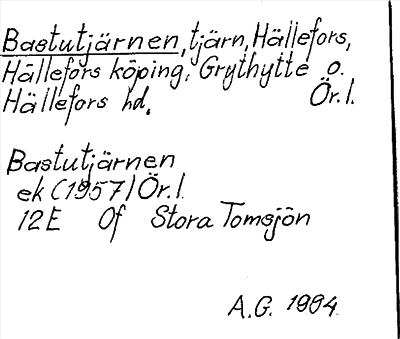 Bastutjärnen, tjärn, Hällefors,
Hällefors köping, Grythytte o.
Hällefors hd. Ör.l.
Bastutjärnen
ek (1957) Ör.l.
12E 0f Stora Tomsjön
A.G. 1984.